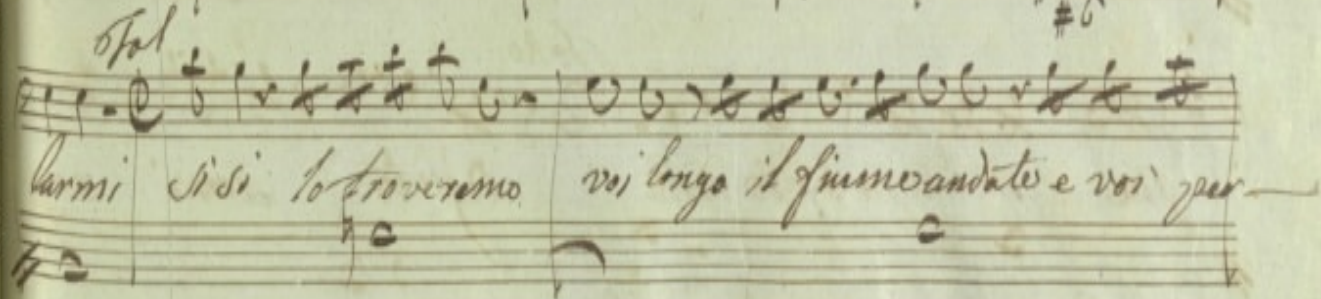 #6
Tol
larmi si si lo troveremo voi longo il fiume andate e voi per